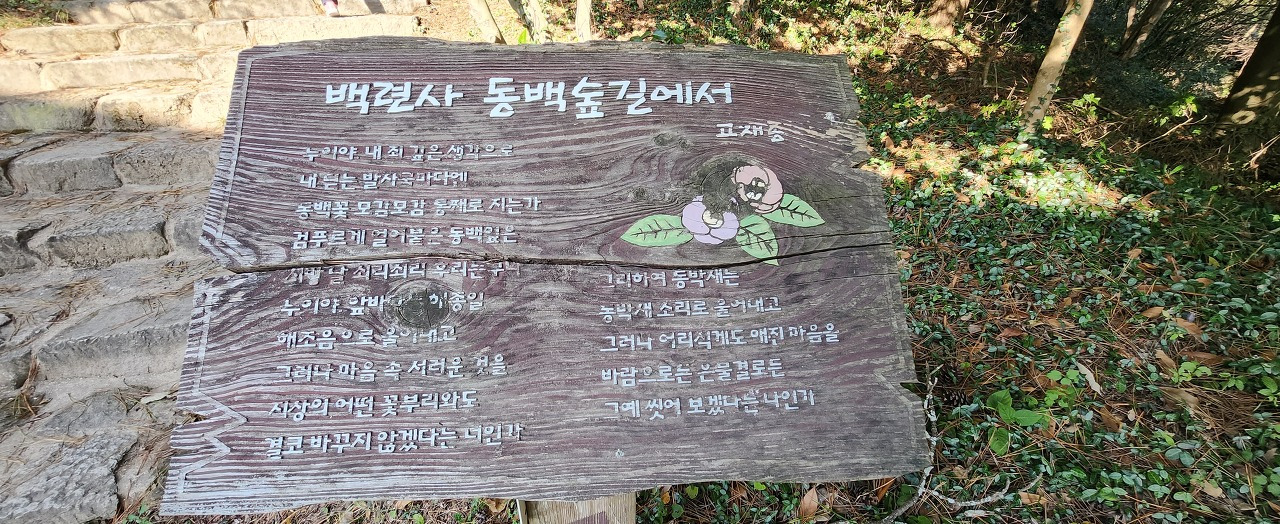 백련사 동백숲길에서
고재종
누이야, 내 죄 깊은 생각으로
내 딛는 발자국마다엔
동백꽃 모감모감 통째로 지는가
검푸르게 얼어붙은 동백잎은
시방 날 쇠리쇠리 후리는구나
누이야, 앞바다는 해종일
해조음으로 울어내고
그러나 마음 속 서러운 것을
지상의 어떤 꽃부리와도
결코 바꾸지 않겠다는 너인가
그리하여 동박새는
동박새 소리로 울어내고
그러나 어리석게도 애진 마음을
바람으로든 은물결로든
그예 씻어 보겠다는 나인가